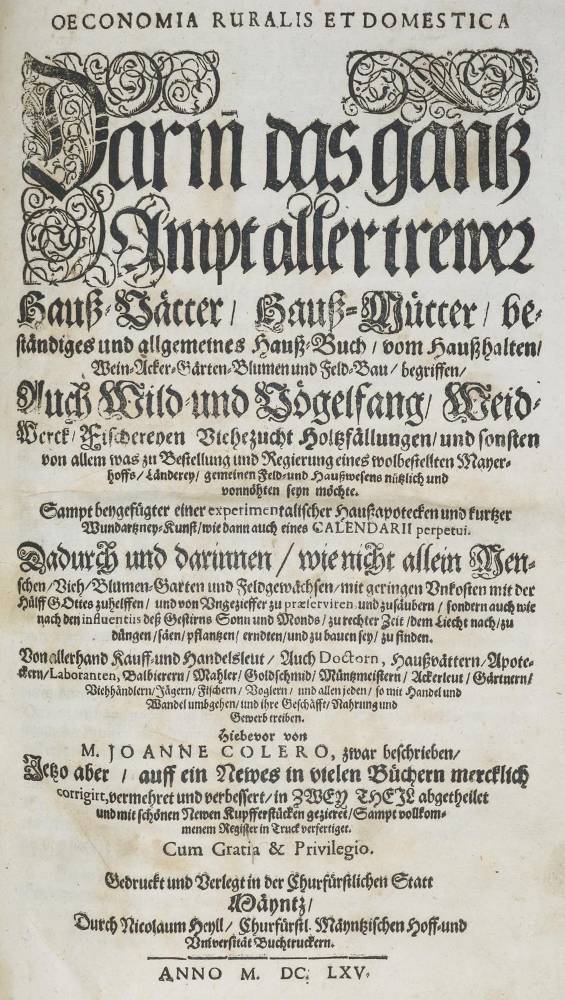 OECONOMIA RURALIS ET DOMESTICA
Darin das gantz
Ampt aller trewer
Hauß-Vätter / Hauß-Mütter / be-
ständiges und allgemeines Hauß-Buch / vom Haußhalten /
Wein-Acker-Gärten-Blumen und Feld-Bau / begriffen /
Auch Wild-und Vögelfang / Weid-
Werck / Fischereyen Viehezucht Holtzfällungen / und sonsten
von allem was zu Bestellung und Regierung eines wolbestellten Mayer-
hoffs / Länderey / gemeinen Feld-und Haußwesens nützlich und
vonnöhten seyn möchte.
Sampt beygefügter einer experimentalischer Haußapotecken und kurtzer
Wundartzney-Kunst / wie dann auch eines CALENDARII perpetui.
Dadurch und darinnen / wie nicht allein Men-
schen / Vieh / Blumen-Garten und Feldgewächsen / mit geringen Vnkosten mit der
Hülff GOttes zuhelffen / und von Vngezieffer zu præserviren und zusäubern / sondern auch wie
nach den influentiis deß Gestirns Sonn und Monds / zu rechter Zeit / dem Liecht nach / zu
düngen / säen / pflantzen / erndten / und zu bauen sey / zu finden.
Von allerhand Kauff-und Handelsleut / Auch Doctorn, Haußvättern / Apote-
ckern / Laboranten, Balbierern / Mahler / Goldschmid / Müntzmeistern / Ackerleut / Gärtnern /
Viehhändlern / Jägern / Fischern / Voglern / und allen jeden / so mit Handel und
Wandel umbgehen / und ihre Geschäfft / Nahrung und
Gewerb treiben.
Hiebevor von
M. JOANNE COLERO, zwar beschrieben /
Jetzo aber / auff ein Newes in vielen Büchern mercklich
corrigirt, vermehret und verbessert / in ZWEY THEIL abgetheilet
und mit schönen Newen Kupfferstücken gezieret / Sampt vollkom-
menem Register in Truck verfertiget.
Cum Gratia & Privilegio.
Gedruckt und Verlegt in der Churfürstlichen Statt
Mäyntz /
Durch Nicolaum Heyll / Churfürstl. Mäyntzischen Hoff-und
Vniversität Buchtruckern.
ANNO M. DC. LXV.